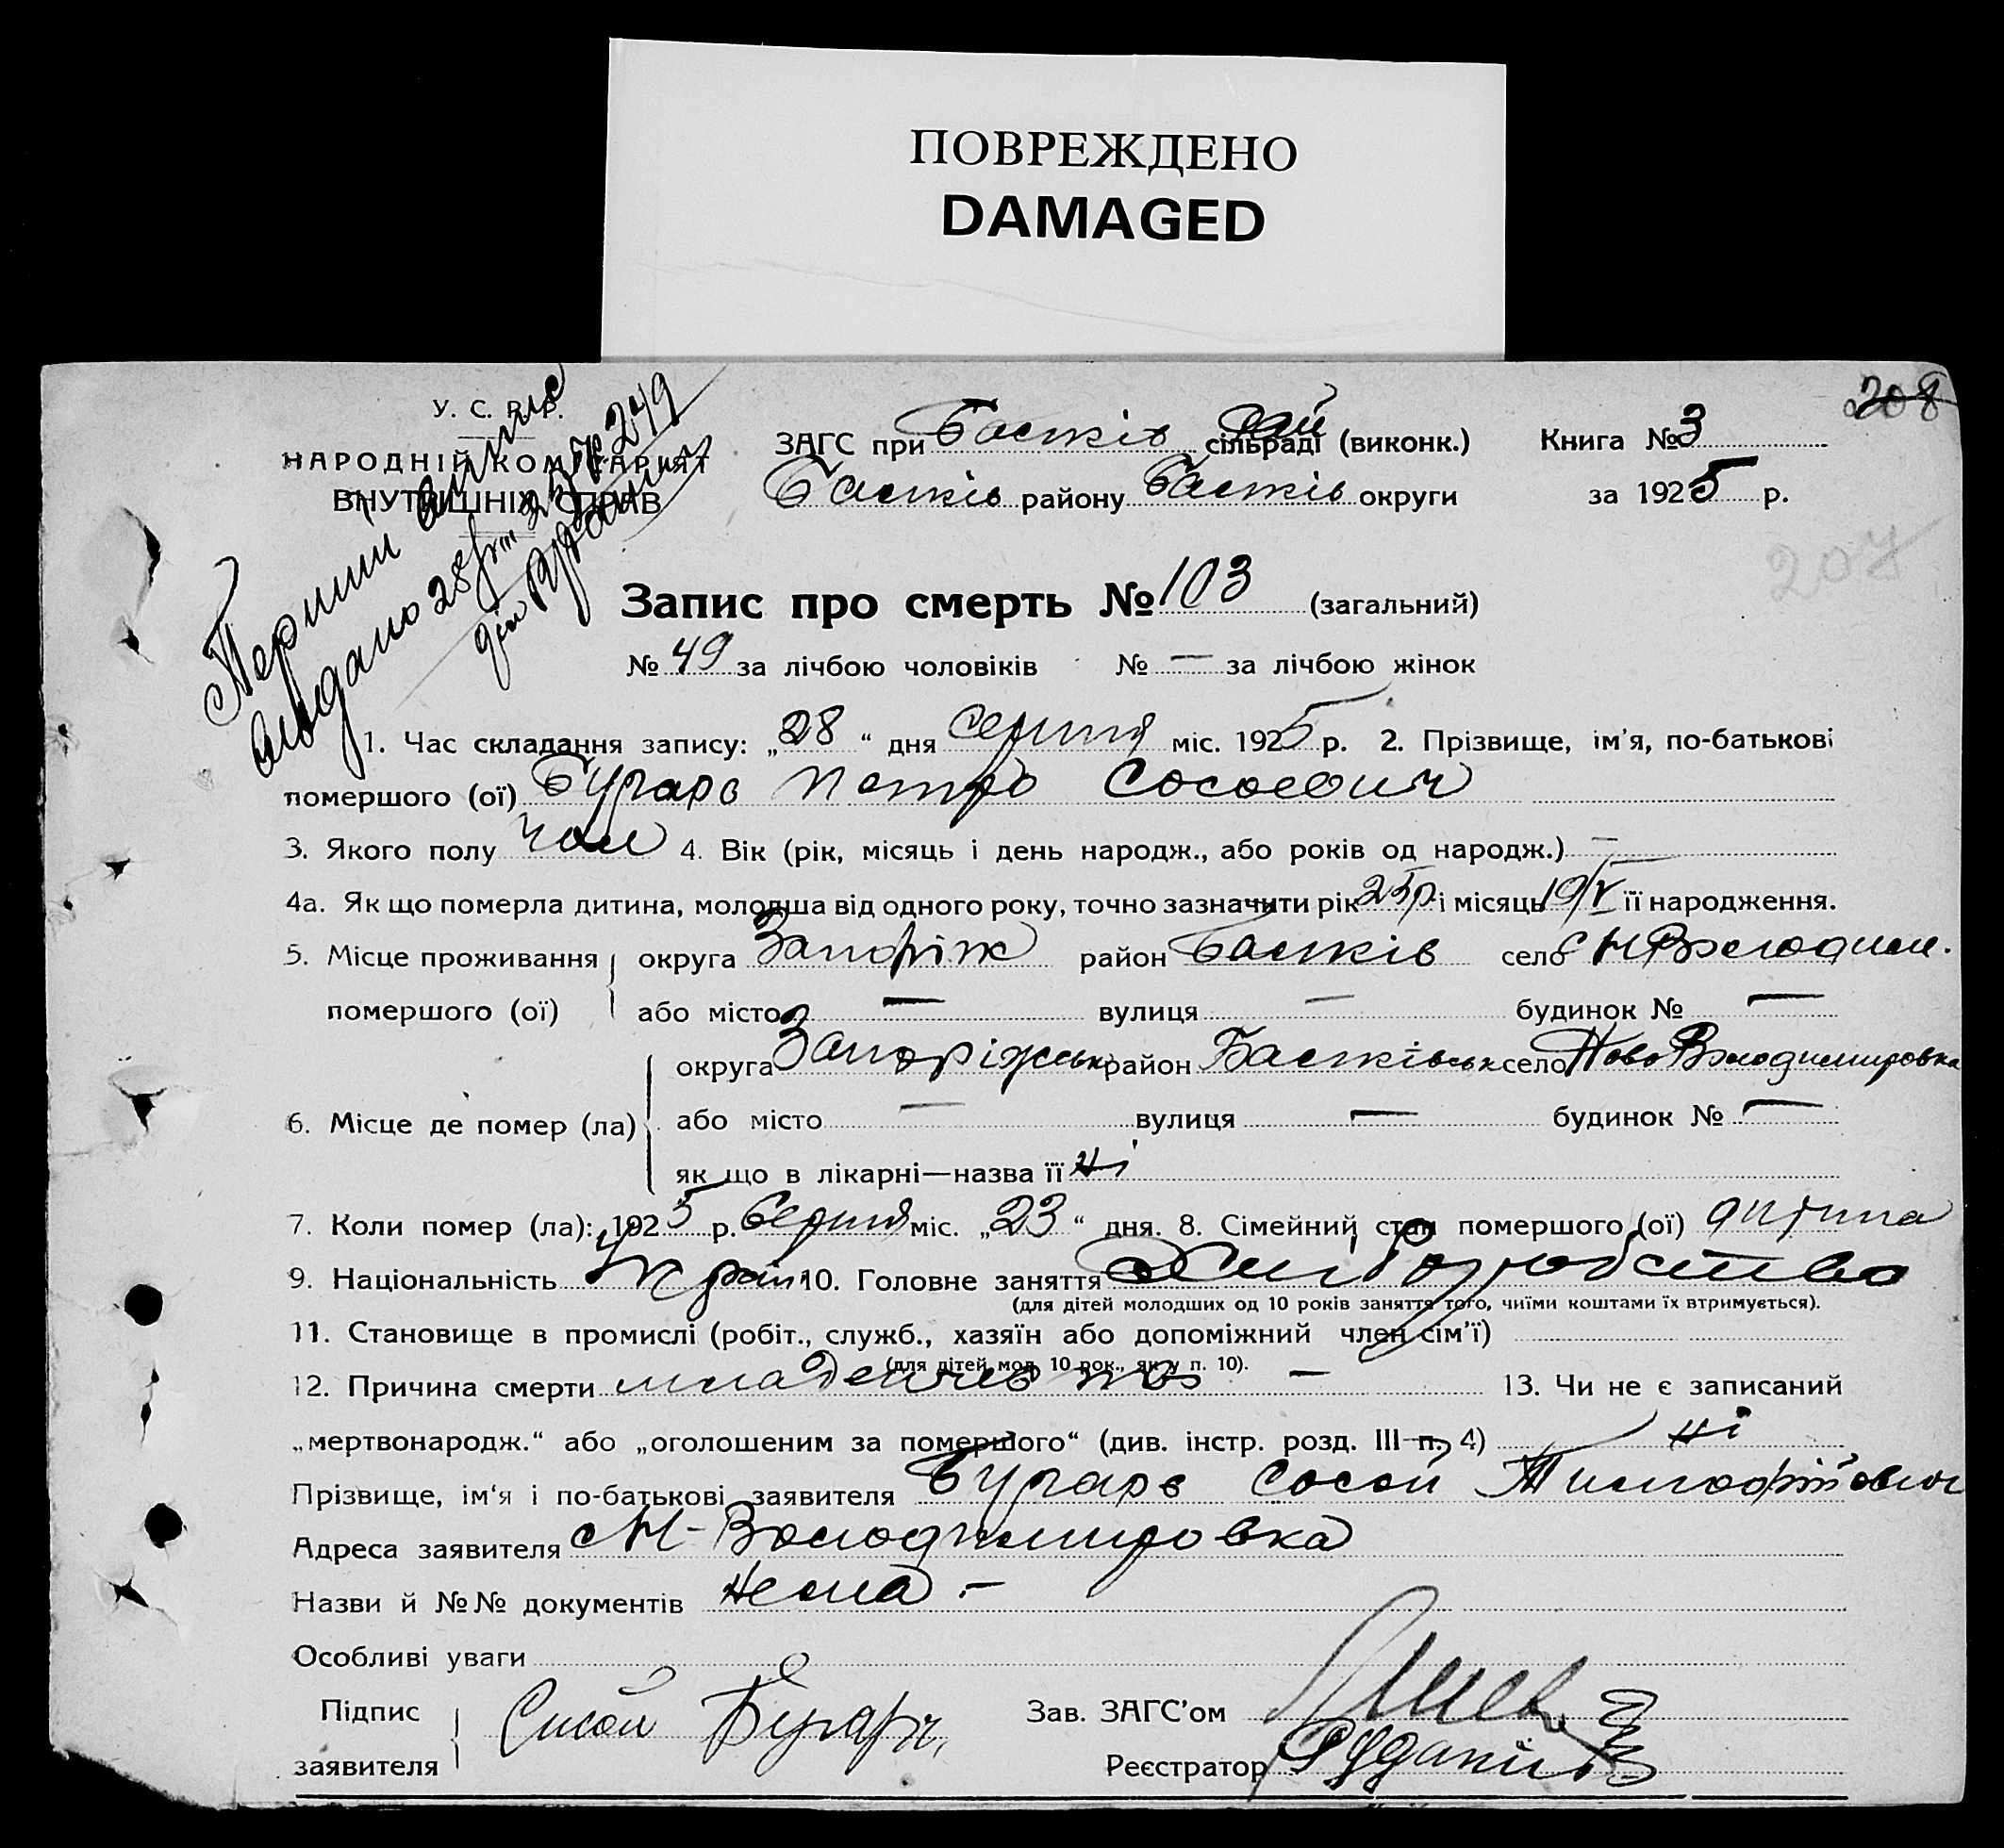 ПОВРЕЖДЕНО
DAMAGED
208
У. С. Р. Р.
НАРОДНІЙ КОМІСАРІЯТ
ВНУТРІШНІХ СПРАВ
ЗАГС при сільраді (виконк.) Книга № 3
району округи за 1925 р.
207
Перший
видано 28
Запис про смерть № 103 (загальний)
№ 49 за лічбою чоловіків № — за лічбою жінок
1. Час складання запису: „28“ дня серпня міс. 1925 р. 2. Прізвище, ім'я, по-батькові
помершого (ої) Бугарь Петро Сосоевич
3. Якого полу чол 4. Вік (рік, місяць і день народж., або років од народж.) —
4а. Як що померла дитина, молодша від одного року, точно зазначити рік 25р і місяць 19/V її народження.
5. Місце проживання округа Запоріж район село Н Володим.
помершого (ої) або місто — вулиця — будинок № —
округа Запоріжськ район село Ново Володимировка
6. Місце де помер (ла) або місто — вулиця — будинок № —
як що в лікарні—назва її ні
7. Коли помер (ла): 1925 р. Серпня міс. „23“ дня. 8. Сімейний стан помершого (ої) дитина
9. Національність Україн 10. Головне заняття Хлиборобство
(для дітей молодших од 10 років заняття того, чиїми коштами їх втримується).
11. Становище в промислі (робіт., служб., хазяїн або допоміжний член сім'ї)
(для дітей мол. 10 рок., як у п. 10).
12. Причина смерти — 13. Чи не є записаний
„мертвонародж.“ або „оголошеним за помершого“ (див. інстр. розд. III п. 4) ні
Прізвище, ім'я і по-батькові заявителя Бугарь Сосой Тимофійович
Адреса заявителя Н-Володимировка
Назви й №№ документів нема —
Особливі уваги
Підпис Сисой Бугарь Зав. ЗАГС'ом
заявителя Реєстратор